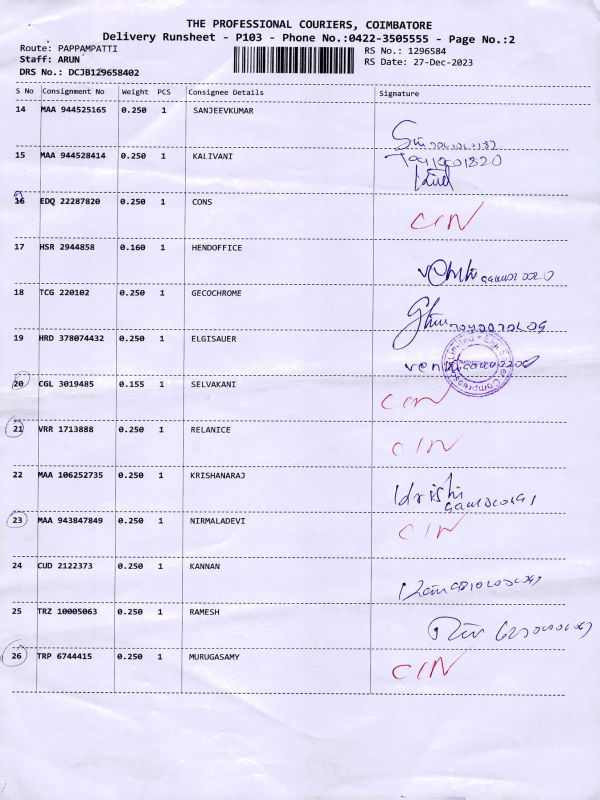 THE PROFESSIONAL COURIERS, COIMBATORE
Delivery Runsheet - P103 - Phone No.:0422-3505555 - Page No.:2
Route: PAPPAMPATTI RS No.: 1296584
Staff: ARUN RS Date: 27-Dec-2023
DRS No.: DCJB129658402
S No Consignment No Weight PCS Consignee Details Signature
14 MAA 944525165 0.250 1 SANJEEVKUMAR
15 MAA 944528414 0.250 1 KALIVANI
16 EDQ 22287820 0.250 1 CONS CIN
17 HSR 2944858 0.160 1 HENDOFFICE
18 TCG 220102 0.250 1 GECOCHROME
19 HRD 378074432 0.250 1 ELGISAUER
20 CGL 3019485 0.155 1 SELVAKANI CIN
21 VRR 1713888 0.250 1 RELANICE CIN
22 MAA 106252735 0.250 1 KRISHANARAJ
23 MAA 943847849 0.250 1 NIRMALADEVI CIN
24 CUD 2122373 0.250 1 KANNAN
25 TRZ 10005063 0.250 1 RAMESH
26 TRP 6744415 0.250 1 MURUGASAMY CIN